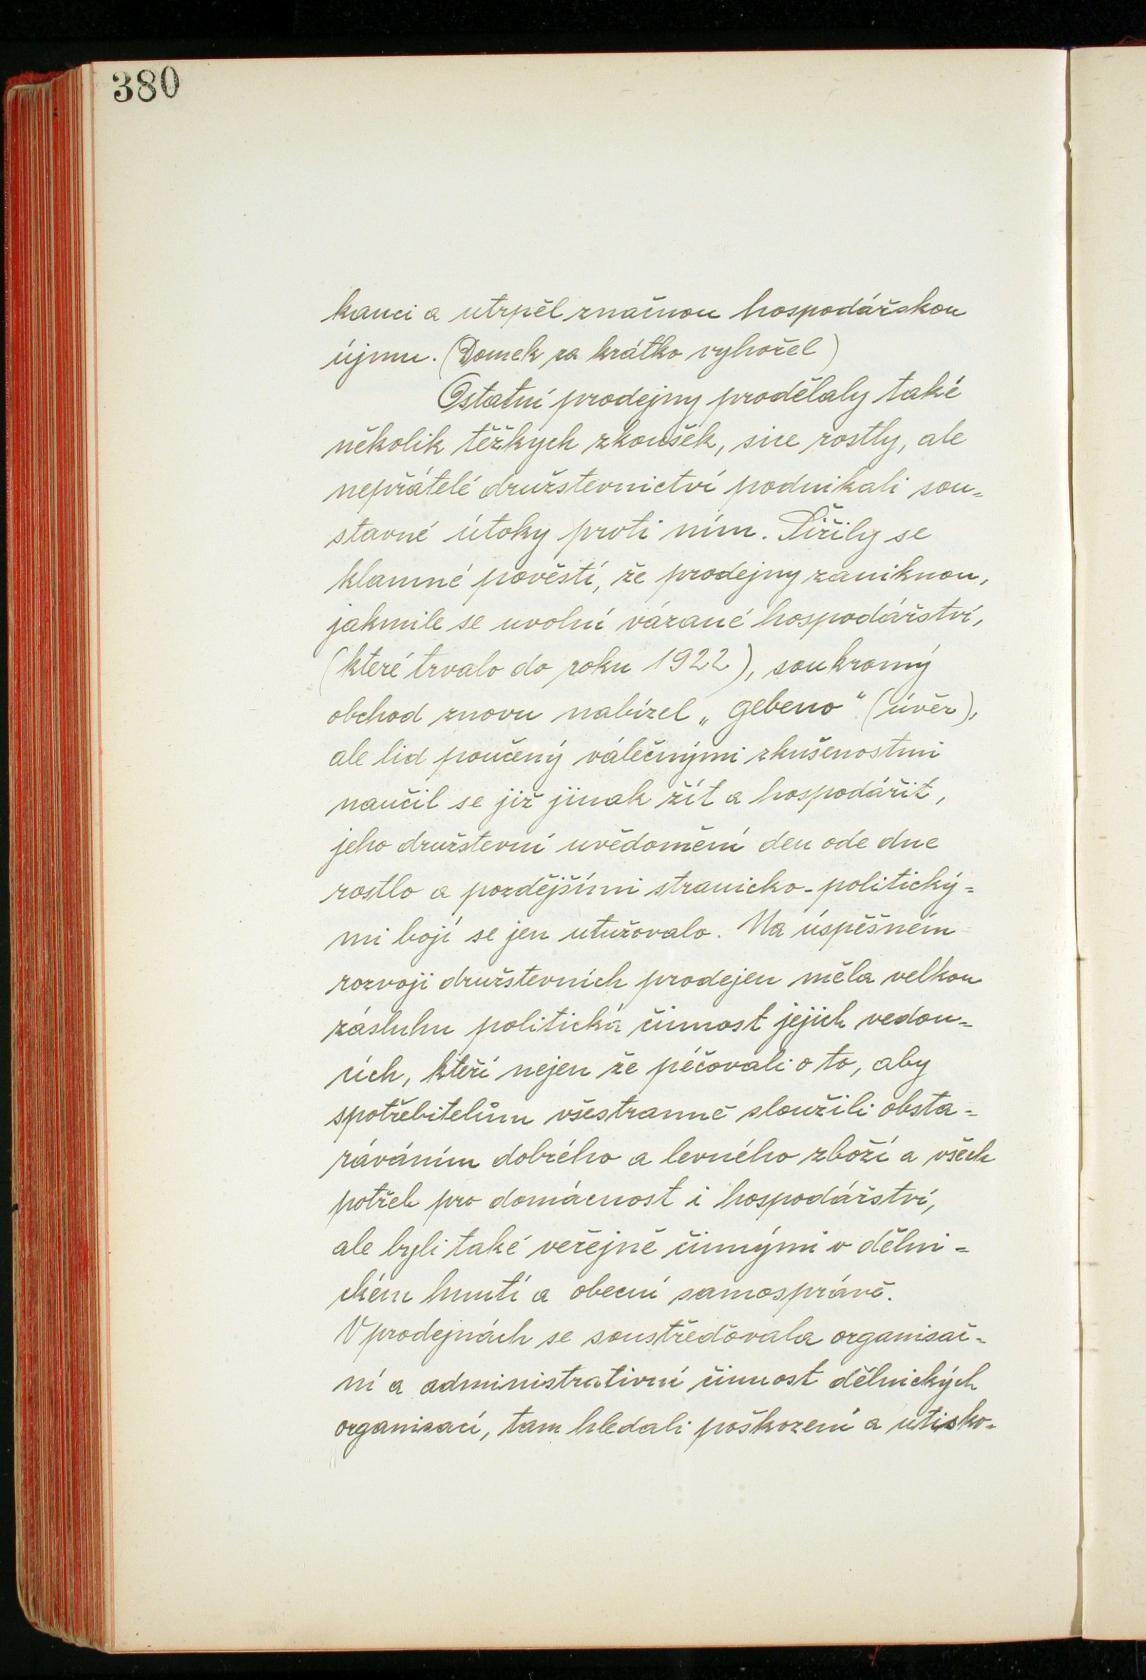 380
kauci a utrpěl značnou hospodářskou
újmu. (Domek za krátko vyhořel)
Ostatní prodejny prodělaly také
několik těžkych zkoušek, sice rostly, ale
nepřátelé družstevnictví podnikali sou=
stavné útoky proti ním. Šířily se
klamné pověstí, že prodejny zaniknou,
jakmile se uvolní vázané hospodářství,
(které trvalo do roku 1922), soukromý
obchod znovu nabízel „gebeno" (úvěr),
ale lid poučený válečnými zkušenostmi
naučil se již jinak žít a hospodářit,
jeho družstevní uvědomění den ode dne
rostlo a pozdějšími stranicko-politický=
mi boji se jen utužovalo. Na úspěšném
rozvoji družstevních prodejen měla velkou
zásluhu politická činnost jejich vedou=
cích, kteří nejen že péčovali o to, aby
spotřebitelům všestranně sloužili obsta=
ráváním dobrého a levného zboží a všech
potřeb pro domácnost i hospodářství,
ale byli také veřejně činnými v dělni=
ckém hnutí a obecní samosprávě.
V prodejnách se soustřeďovala organisač=
ní a administrativní činnost dělnických
organisací, tam hledali poškození a utisko=